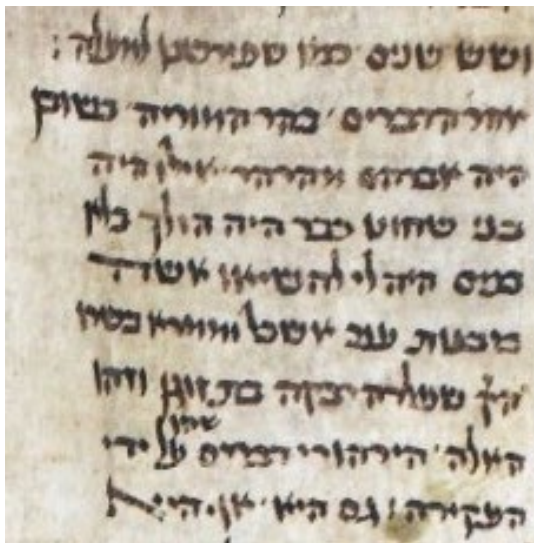 ושש שנים כמו שפירשנו למעלה :
אחר הדברים בהר המוריה כשובו
היה אברהם מהרהר אילו היה
בני שחוט כבר היה הולך בלא
בנים היה לי להשיאו אשה
מבנות ענר אשכול וממרא בשרו
הק' שנולדה רבקה בת זוגו וזהו
האלה הירהורי דברים שהיו על ידי
העקידה : גם היא אף